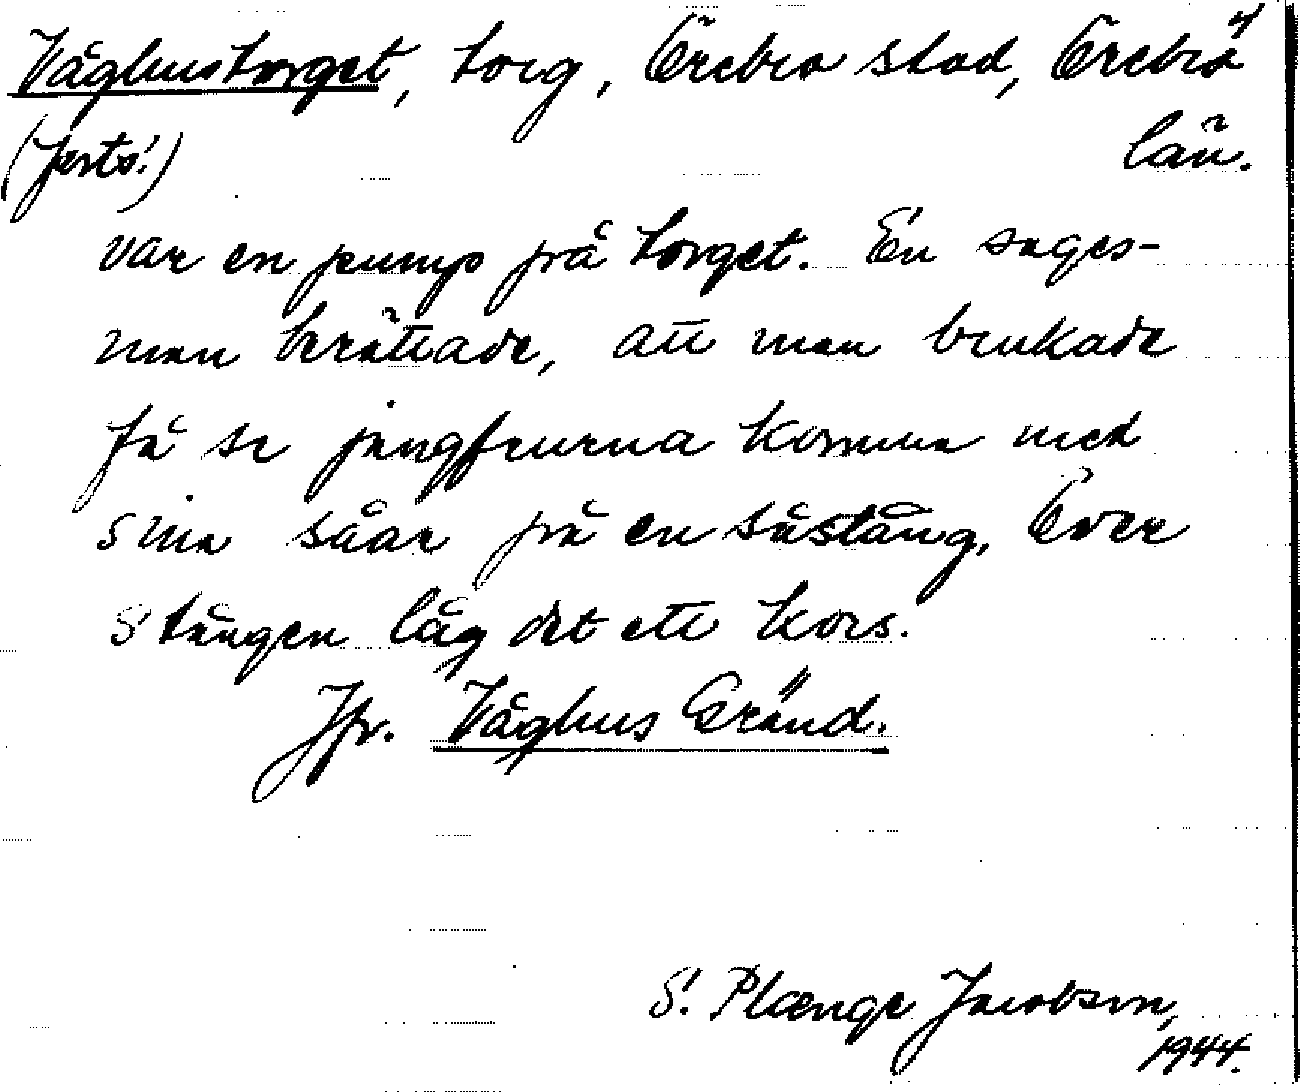 Våghustorget, torg, Örebro stad, Örebro
(forts.) län.
var en pump på torget. En sages-
man berättade, att man brukade
få se jungfrurna komma med
sina såar på en såstång. Över
stången låg det ett kors.
Jfr. Våghus Gränd.
S. Plænge Jacobson,
1944.